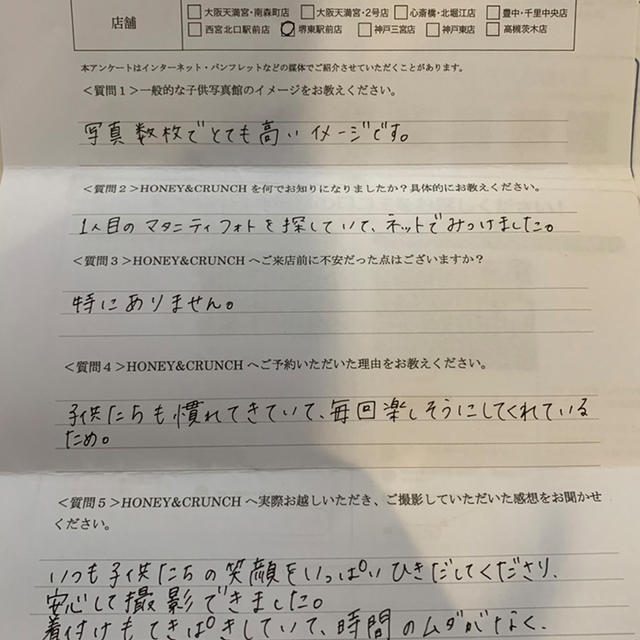 店舗
□大阪天満宮・南森町店 □大阪天満宮・2号店 □心斎橋・北堀江店 □豊中・千里中央店
□西宮北口駅前店 □堺東駅前店 □神戸三宮店 □神戸東店 □高槻茨木店
本アンケートはインターネット・パンフレットなどの媒体でご紹介させていただくことがあります。
＜質問１＞一般的な子供写真館のイメージをお教えください。
写真数枚でとても高いイメージです。
＜質問２＞HONEY&CRUNCH を何でお知りになりましたか？具体的にお教えください。
1人目のマタニティフォトを探していて、ネットでみつけました。
＜質問３＞HONEY&CRUNCH へご来店前に不安だった点はございますか？
特にありません。
＜質問４＞HONEY&CRUNCH へご予約いただいた理由をお教えください。
子供たちも慣れてきていて、毎回楽しそうにしてくれている
ため。
＜質問５＞HONEY&CRUNCH へ実際お越しいただき、ご撮影していただいた感想をお聞かせ
ください。
いつも子供たちの笑顔をいっぱいひきだしてくださり、
安心して撮影できました。
着付けもてきぱきしていて、時間のムダがなく、